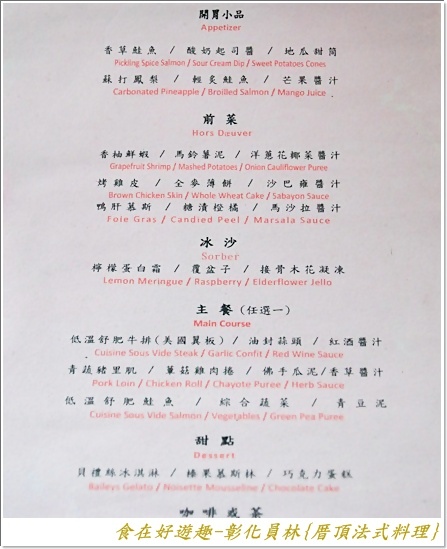 開胃小品
Appetizer
香草鮭魚 / 酸奶起司醬 / 地瓜甜筒
Pickling Spice Salmon / Sour Cream Dip / Sweet Potatoes Cones
蘇打鳳梨 / 輕炙鮭魚 / 芒果醬汁
Carbonated Pineapple / Broilled Salmon / Mango Juice
前菜
Hors Dœuver
香柚鮮蝦 / 馬鈴薯泥 / 洋蔥花椰菜醬汁
Grapefruit Shrimp / Mashed Potatoes / Onion Cauliflower Puree
烤雞皮 / 全麥薄餅 / 沙巴雍醬汁
Brown Chicken Skin / Whole Wheat Cake / Sabayon Sauce
鴨肝慕斯 / 糖漬橙橘 / 馬沙拉醬汁
Foie Gras / Candied Peel / Marsala Sauce
冰沙
Sorber
檸檬蛋白霜 / 覆盆子 / 接骨木花凝凍
Lemon Meringue / Raspberry / Elderflower Jello
主餐(任選一)
Main Course
低溫舒肥牛排(美國翼板) / 油封蒜頭 / 紅酒醬汁
Cuisine Sous Vide Steak / Garlic Confit / Red Wine Sauce
青蔬豬里肌 / 蕈菇雞肉捲 / 佛手瓜泥/香草醬汁
Pork Loin / Chicken Roll / Chayote Puree / Herb Sauce
低溫舒肥鮭魚 / 綜合蔬菜 / 青豆泥
Cuisine Sous Vide Salmon / Vegetables / Green Pea Puree
甜點
Dessert
貝禮絲冰淇淋 / 榛果慕斯林 / 巧克力蛋糕
Baileys Gelato / Noisette Mousseline / Chocolate Cake
咖啡或茶
食在好遊趣-彰化員林{厝頂法式料理}